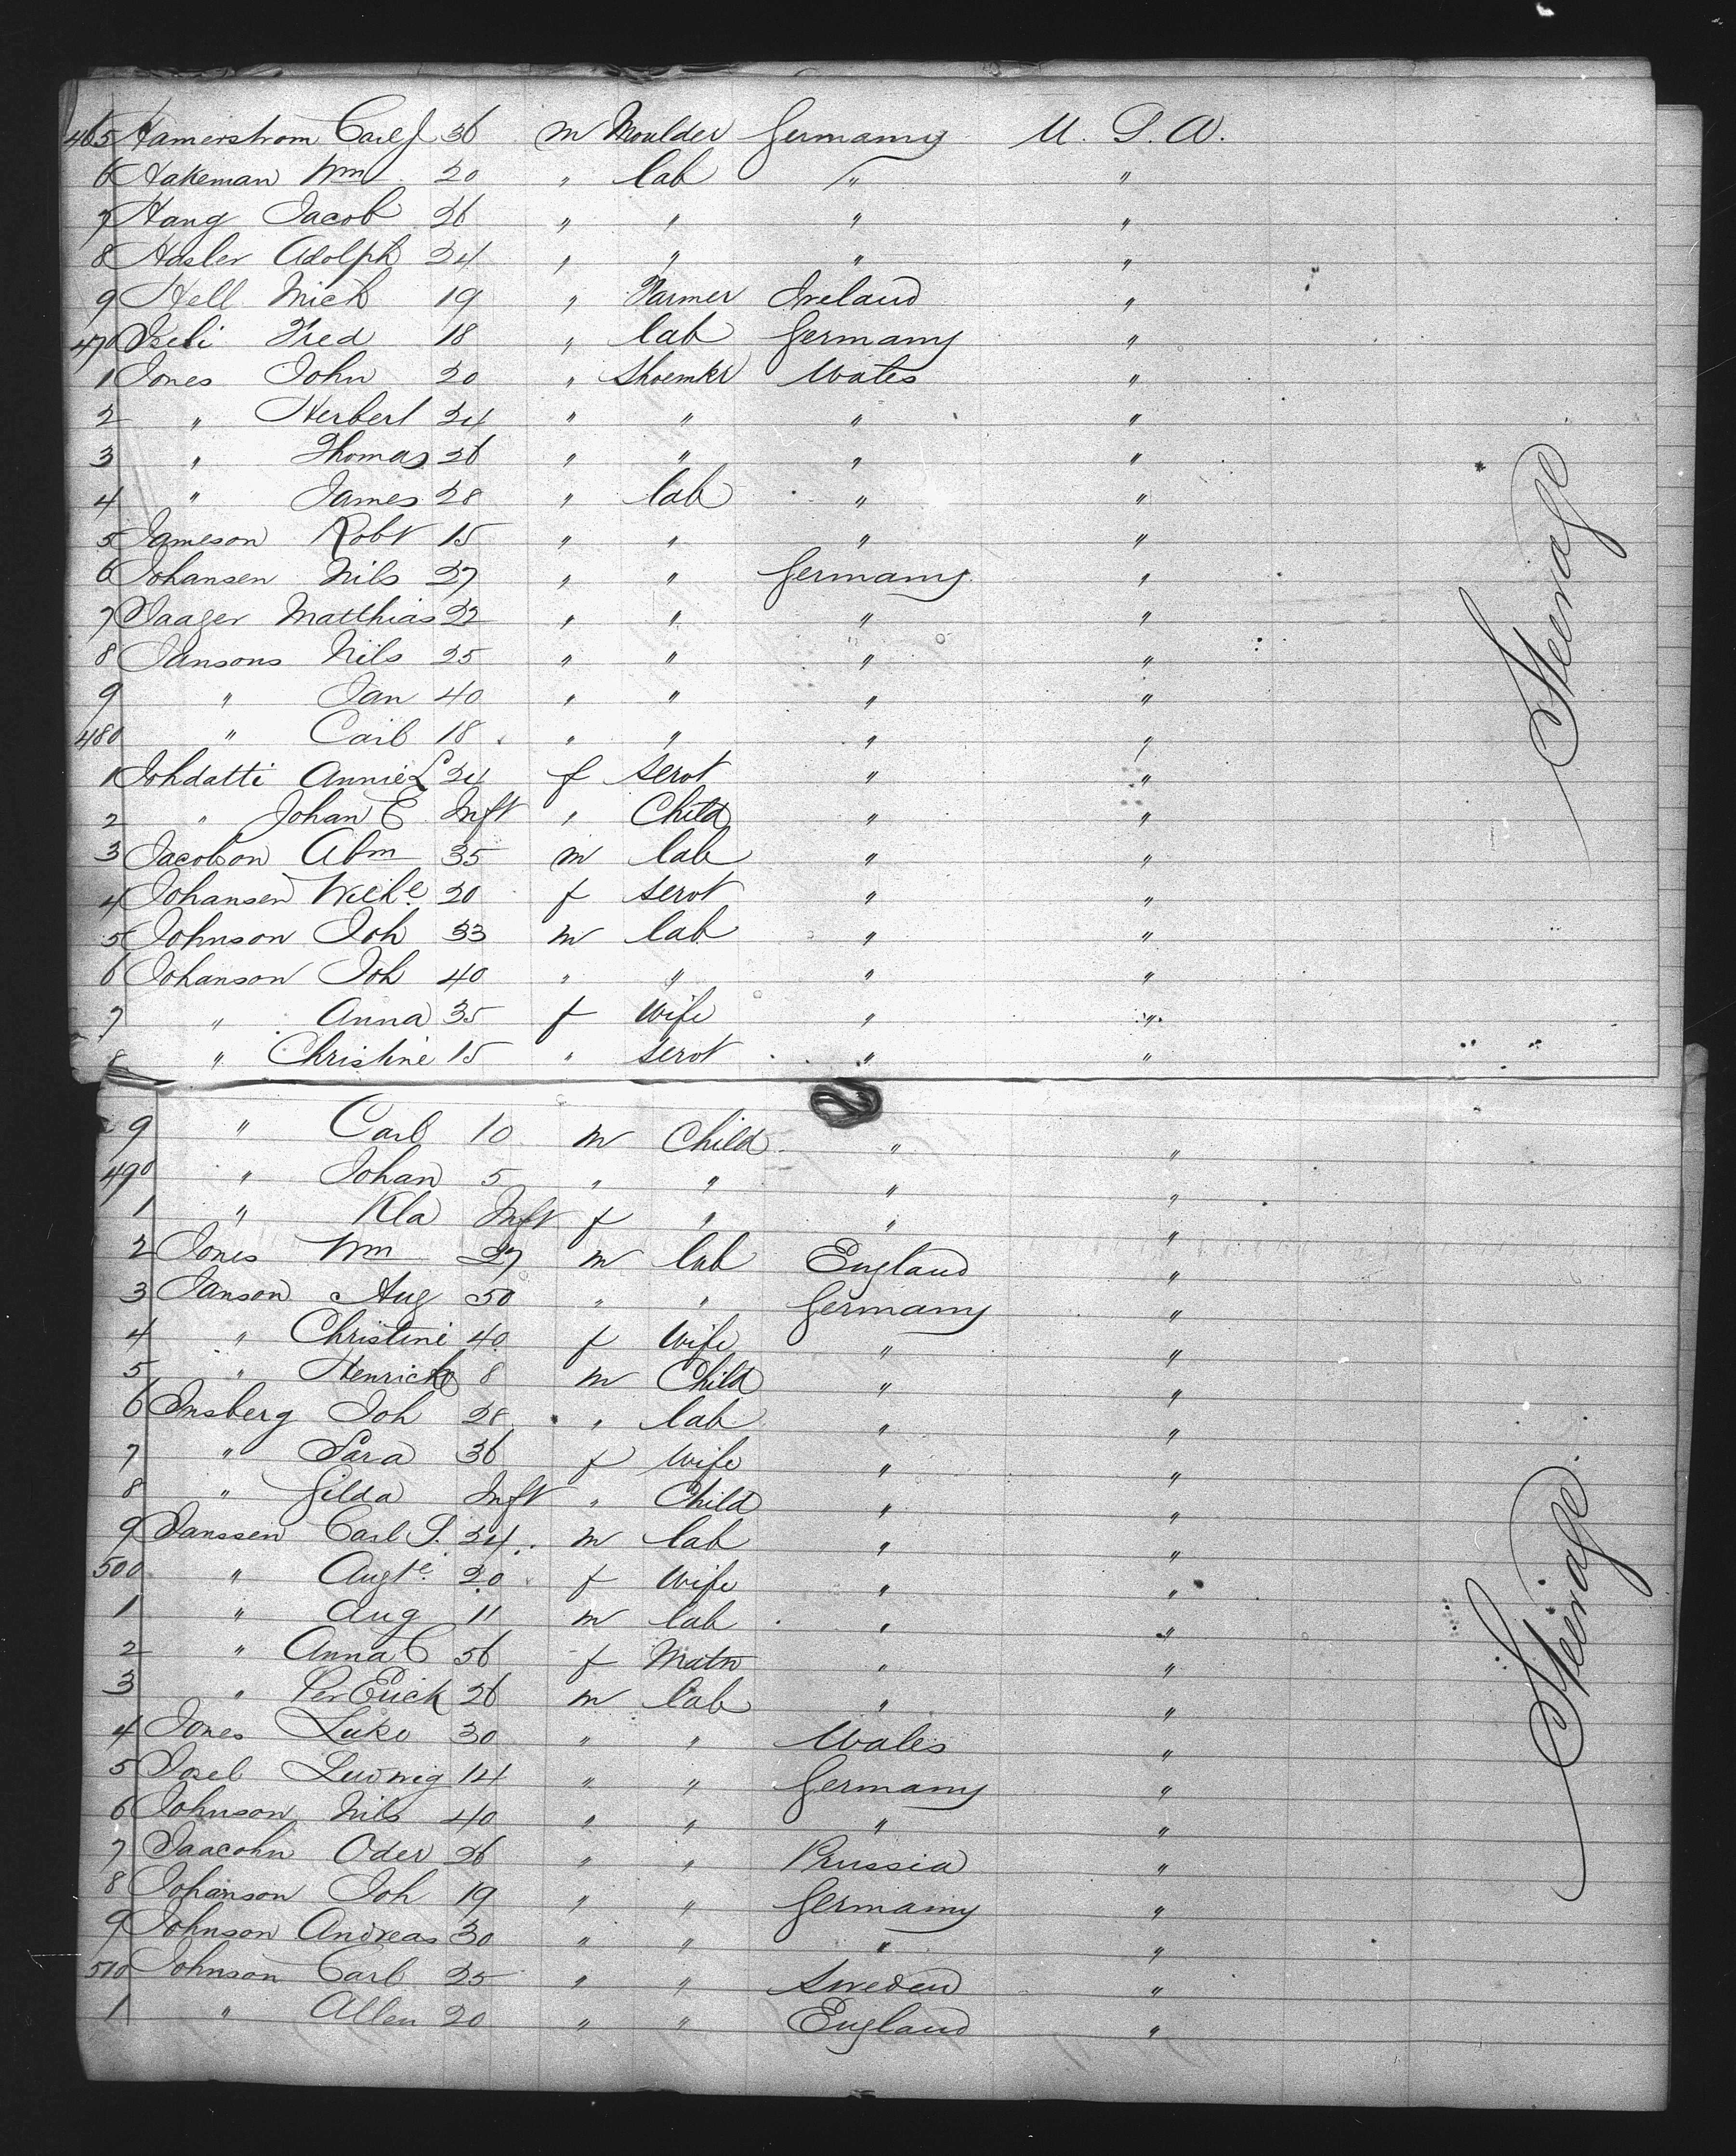 465 Hamerstrom Carl J 36 m Moulder Germany U. S. A.
6 Hakeman Wm 20 " lab " "
7 Hang Jacob 26 " " " "
8 Hasler Adolph 24 " " " "
9 Hell Mich 19 " Farmer Ireland "
470 Iseli Fred 18 " lab Germany "
1 Jones John 20 " Shoemkr Wales "
2 " Herbert 24 " " " "
3 " Thomas 26 " " " "
4 " James 28 " lab " "
5 Jameson Robt 15 " " " "
6 Johansen Nils 27 " " Germany "
7 Jaager Matthias 22 " " " "
8 Jansons Nils 25 " " " "
9 " Jan 40 " " " "
480 " Carl 18 " " " "
1 Johdatti Annie L 24 f servt " "
2 " Johan E Inft " Child " "
3 Jacobson Abm 35 m lab " "
4 Johansen 20 f servt " "
5 Johnson Joh 33 m lab " "
6 Johanson Joh 40 " " " "
7 " Anna 35 f Wife " "
8 " Christine 15 " servt " "
Steerage
9 " Carl 10 m Child " "
490 " Johan 5 " " " "
1 " Kla Inft f " " "
2 Jones Wm 27 m lab England "
3 Janson Aug 50 " " Germany "
4 " Christine 40 f Wife " "
5 " Henrick 8 m Child " "
6 Insberg Joh 28 " lab " "
7 " Sara 36 f Wife " "
8 " Gilda Inft " Child " "
9 Janssen Carl S. 24 m lab " "
500 " Augte 20 f Wife " "
1 " Aug 11 m lab " "
2 " Anna C 56 f Matn " "
3 " Per Erick 26 m lab " "
4 Jones Luke 30 " " Wales "
5 Josel Ludwig 14 " " Germany "
6 Johnson Nils 40 " " " "
7 Jaacohn Oder 26 " " Prussia "
8 Johanson Joh 19 " " Germany "
9 Johnson Andreas 30 " " " "
510 Johnson Carl 25 " " Sweden "
1 " Allen 20 " " England "
Steerage